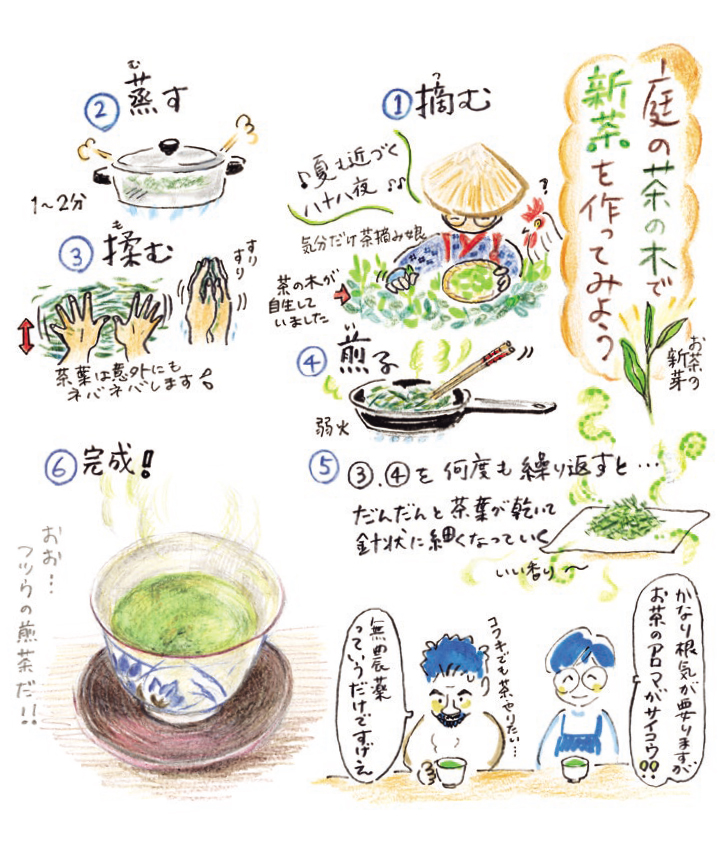 庭の茶の木で
新茶を作ってみよう
お茶の
新芽
① 摘む
つ
♪夏も近づく
八十八夜 ♪♪
気分だけ茶摘み娘
?
茶の木が
自生して
いました
② 蒸す
む
1〜2分
③ 揉む
も
すり
すり
茶葉は意外にも
ネバネバします
④ 煎る
い
弱火
⑤ ③.④を何度も繰り返すと…
だんだんと茶葉が乾いて
針状に細くなっていく
いい香り〜
⑥ 完成!
おお…
フツウの煎茶だ!!
かなり根気が要りますが
お茶のアロマがサイコウ!!
コワキでも茶やりたい…
無農薬
っていうだけですげえ